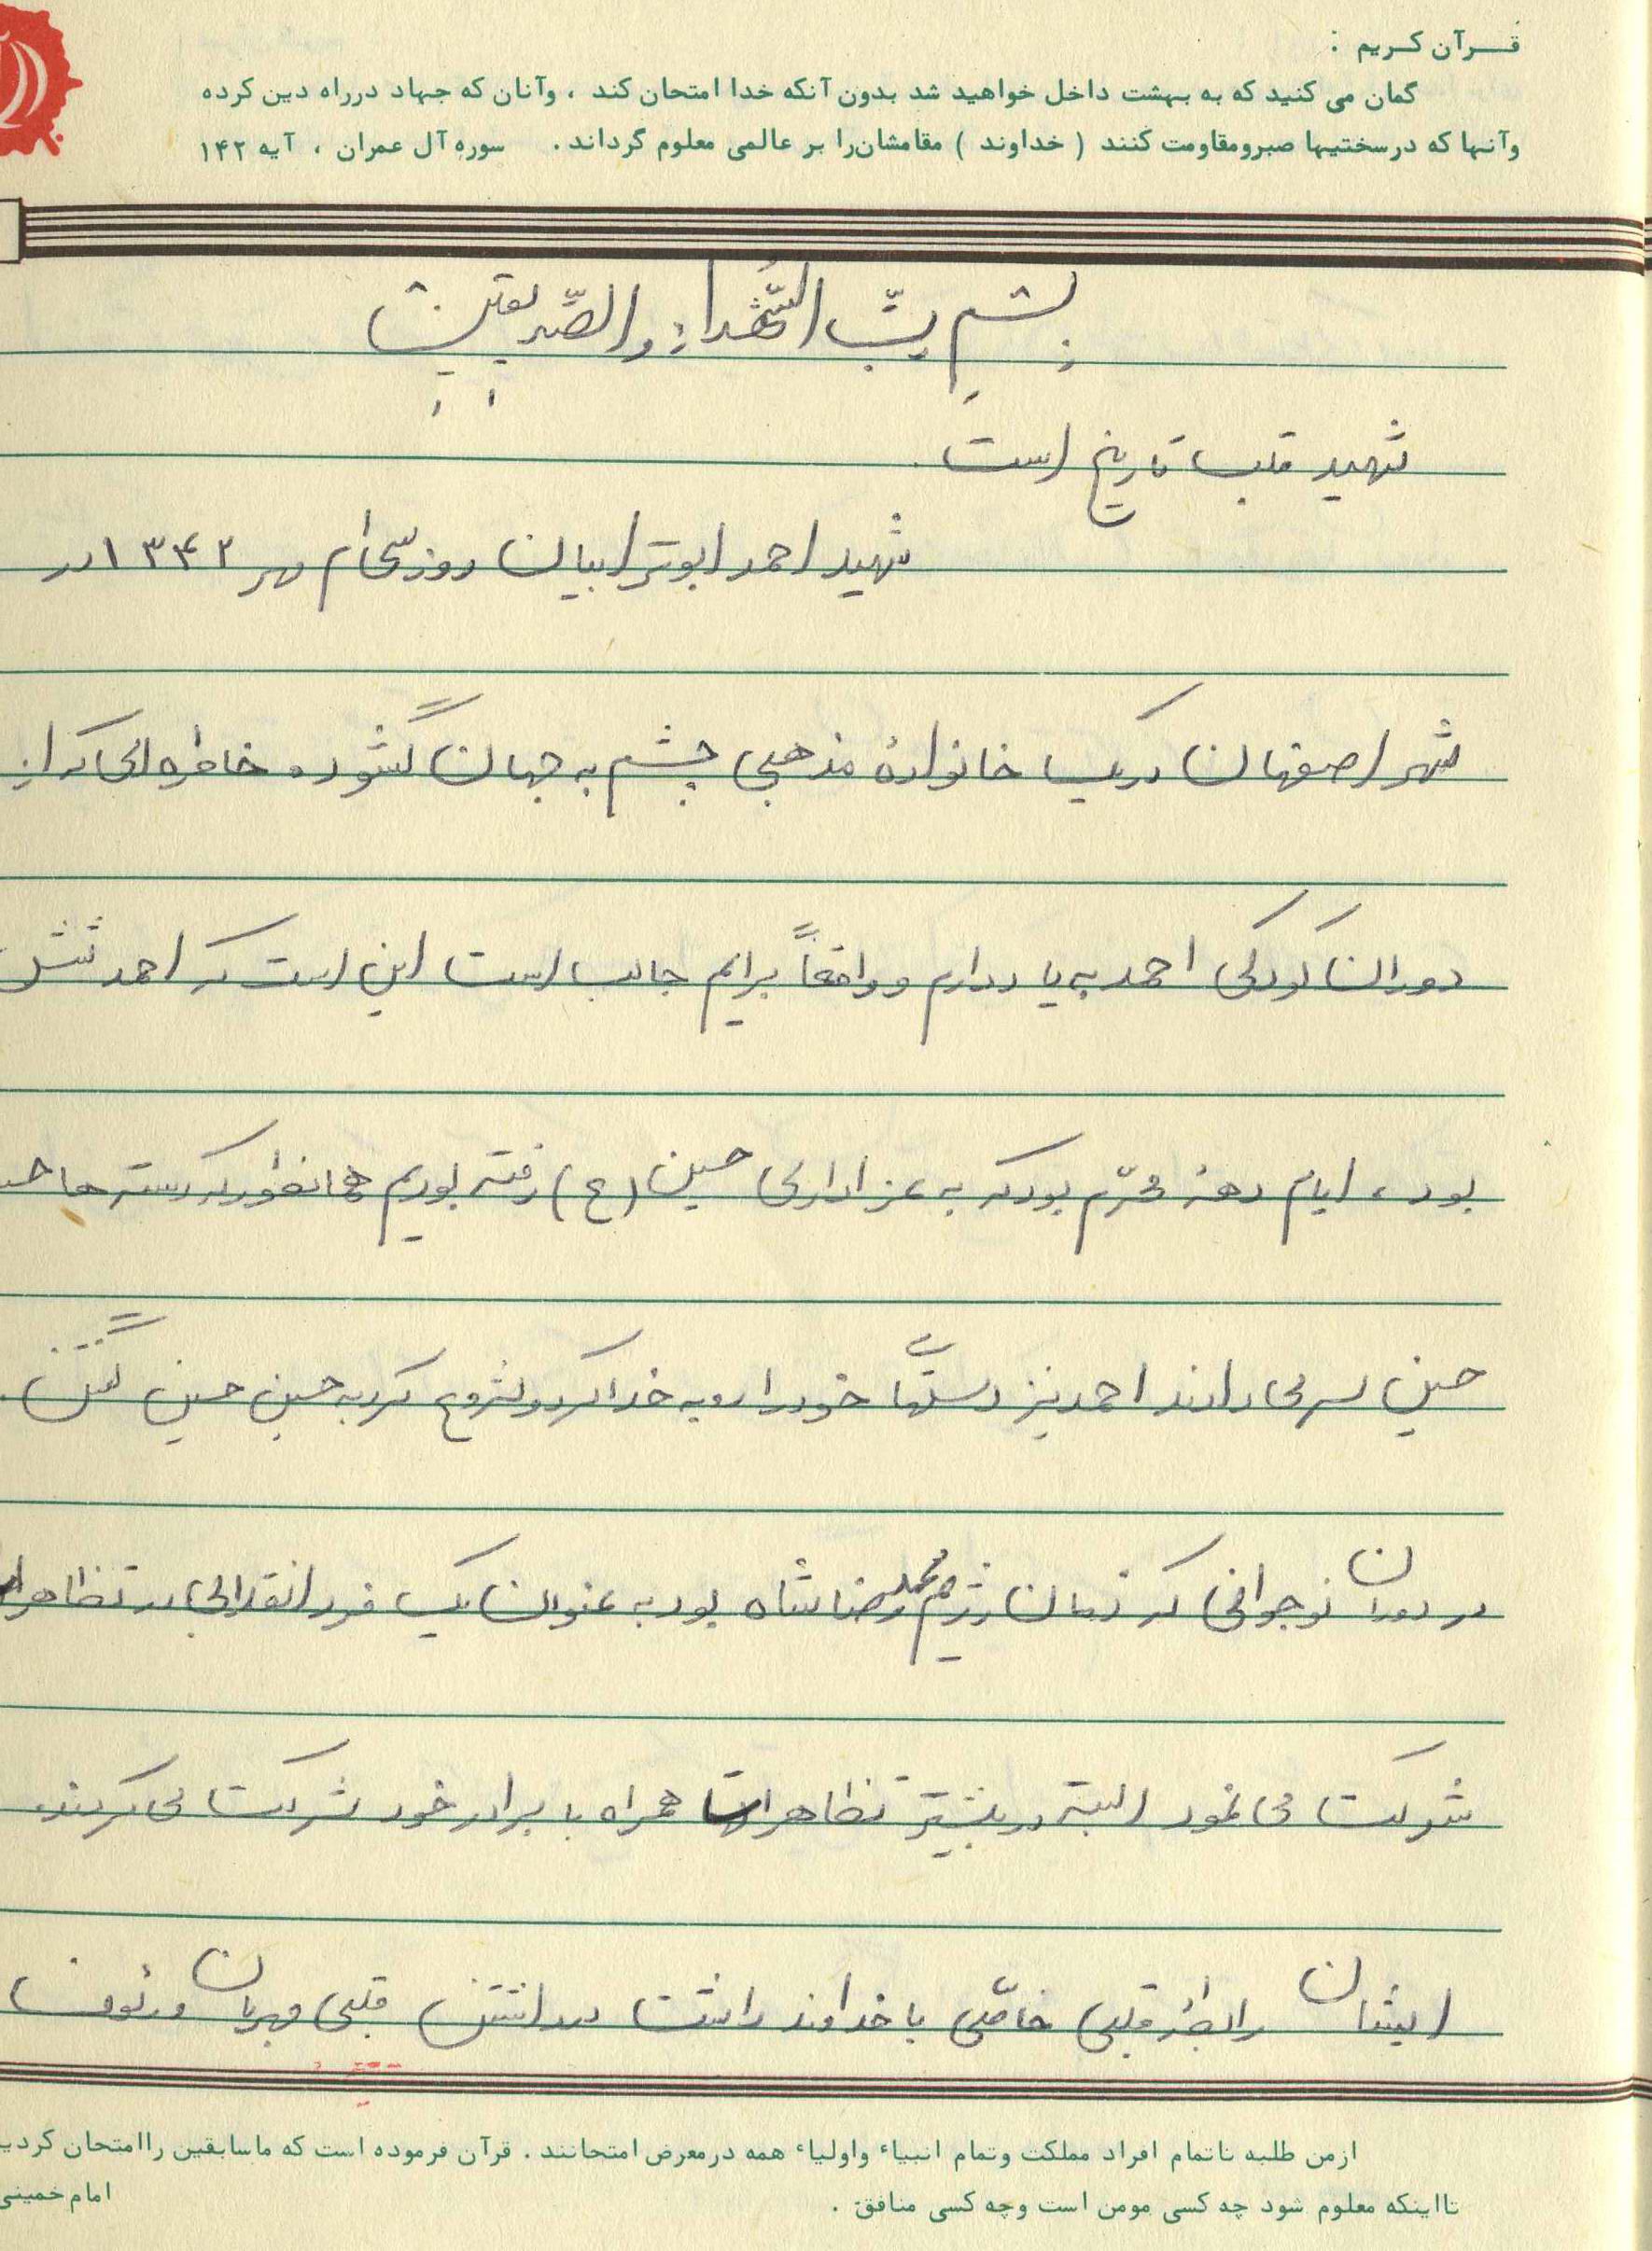 قـرآن کـریم :
گمان می کنید که به بهشت داخل خواهید شد بدون آنکه خدا امتحان کند ، وآنان که جهاد درراه دین کرده
وآنها که درسختیها صبرومقاومت کنند ( خداوند ) مقامشان‌را بر عالمی معلوم گرداند . سوره آل عمران ، آیه ۱۴۲
بسم ربّ الشّهداءِ والصّدیقین
شهید قلب تاریخ است.
شهید احمد ابوترابیان روز سی‌ام مهر ۱۳۴۲ در
شهر اصفهان در یک خانوادهٔ مذهبی چشم به جهان گشوده خاطره‌ای که از
دوران کودکی احمد به یاد دارم و واقعاً برایم جالب است این است که احمد شش
بود، ایام دههٔ محرّم بود که به عزاداری حسین (ع) رفته بودیم همانطور که دسته‌ها
حسین سر می‌دادند احمد نیز دستهای خود را رو به خدا کرد و شروع کرد به حسین حسین گفتن.
در دوران نوجوانی که زمان رژیم محمدرضا شاه بود به عنوان یک فرد انقلابی در تظاهرات
شرکت می‌نمود البته در بیشتر تظاهرات همراه با برادر خود شرکت می‌کردند.
ایشان رابطهٔ قلبی خاصّی با خداوند داشت در داشتن قلبی مهربان و رئوف
ازمن طلبه تاتمام افراد مملکت وتمام انبیاء واولیاء همه درمعرض امتحانند . قرآن فرموده است که ماسابقین راامتحان کردیم
تااینکه معلوم شود چه کسی مومن است وچه کسی منافق . امام خمینی